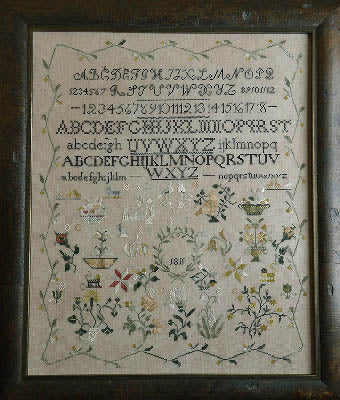 ABCDEFGHIJKLMNOPQ
1234567 RSTUVWXYZ 89101112
-123456789101112131415161718-
ABCDEFGHIJKLMNOPQRST
abcdefgh UVWXYZ ijklmnopq
ABCDEFGHIJKLMNOPQRSTUV
abcdefghijklm — WXYZ — nopqrstuvwxyz